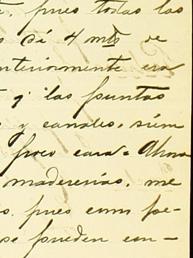 pues todas las
Di 4 mds de
anteriormente era
y las puntas
y canales, siem
poco cara. Ahora
maderenias, me
pues com pe-
se pueden con-